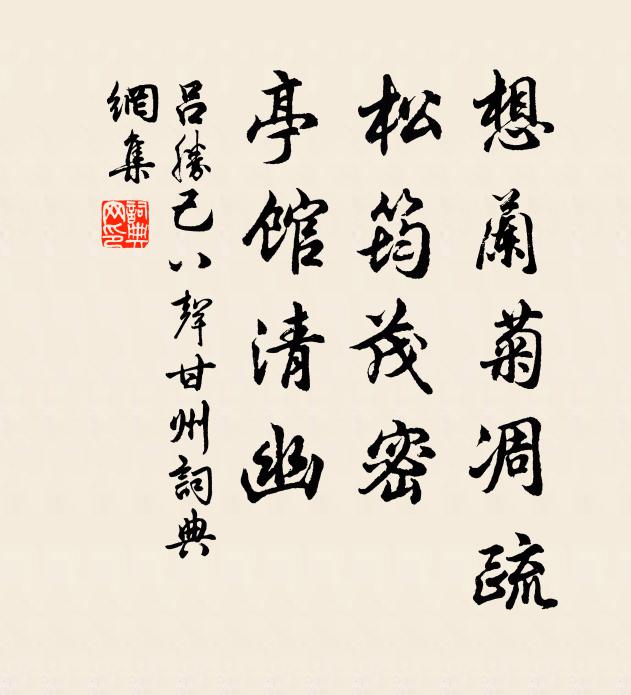 想蘭菊凋疏
松筠茂密
亭館清幽
呂勝己八聲甘州詞典
網集
詞典網印